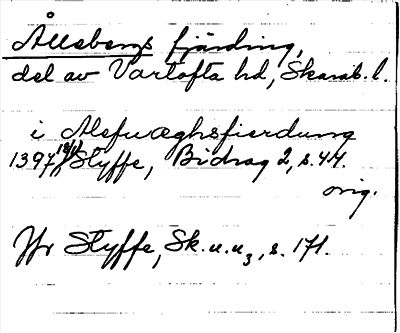 Ållebergs fjärding,
del av Vartofta hd, Skarab. l.
i Alefwæghsfierdung
1397 18/11 Styffe, Bidrag 2, s. 44.
orig.
Jfr Styffe, Sk. u. u3, s. 171.